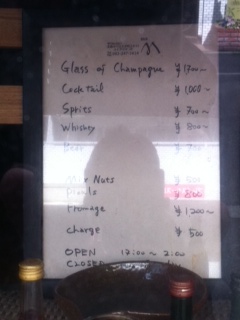 Glass of Champagne ¥1700~
Cocktail ¥1,000~
Sprits ¥700~
Whisky ¥800~
Beer ¥700
Mix Nuts ¥500
¥800
Fromage ¥1200~
Charge ¥500
OPEN 18:00~2:00
CLOSED